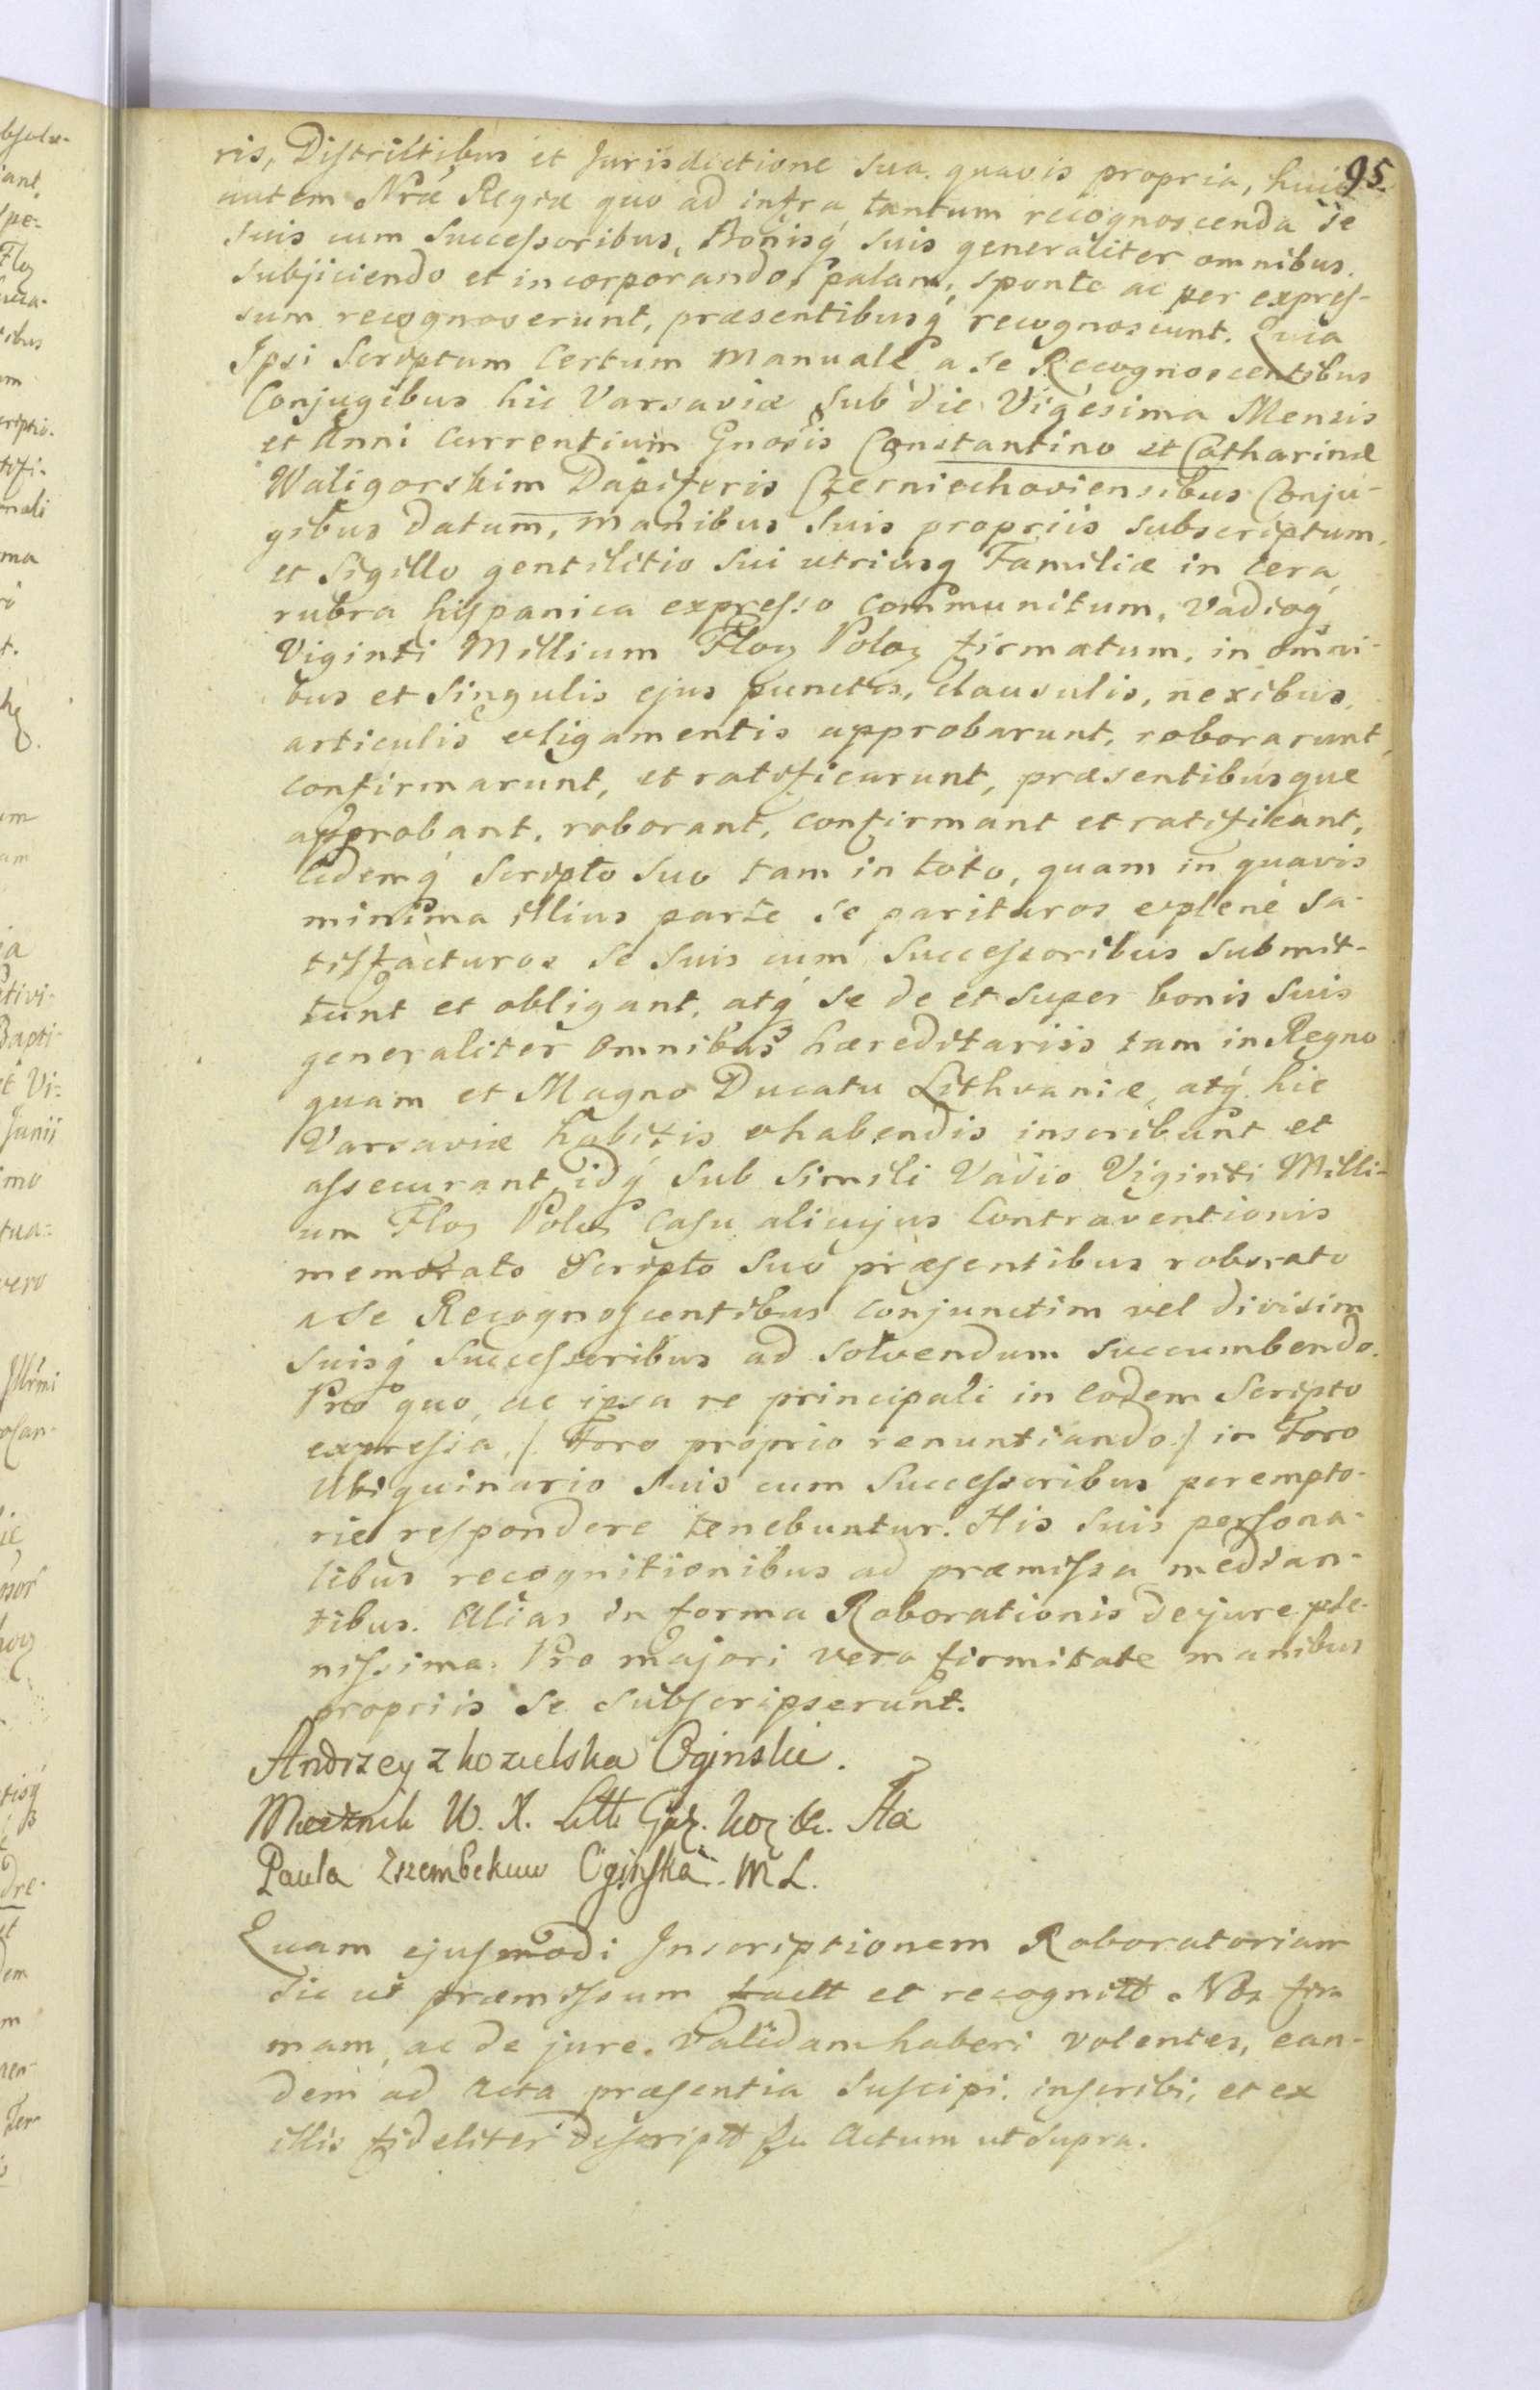 95.
ris, Districtibus et Jurisdictione sua quavis propria, huic
autem Nrae Regiae quo ad infra tantum recognoscenda se
suis cum Successoribus, Bonisq suis generaliter omnibus
subjiciendo et incorporando, palam, sponte ac per expres-
sum recognoverunt, praesentibusq recognoscunt. Quia
Ipsi Scriptum Certum Manuale a se Recognoscentibus
Conjugibus hic Varsaviae sub die Vigesima Mensis
et Anni Currentium Gnosis Constantino et Catharinae
Waligorskim Dapiferis Czerniechoviensibus Conju-
gibus datum, manibus suis propriis subscriptum,
et Sigillo gentilitio sui utriusq Familiae in cera
rubra hispanica expresso communitum, Vadioq
Viginti Millium Flor Polor firmatum, in omni-
bus et singulis ejus punctis, clausulis, nexibus,
articulis & ligamentis approbarunt, roborarunt,
confirmarunt, et ratificarunt, praesentibusque
approbant, roborant, confirmant et ratificant,
Eidemq Scripto suo tam in toto, quam in quavis
minima illius parte se parituros & plene sa-
tisfacturos se suis cum Successoribus submit-
tunt et obligant, atq se de et super bonis suis
generaliter omnibus haereditariis tam in Regno
quam et Magno Ducatu Lithvaniae, atq hic
Varsaviae habitis & habendis inscribunt et
assecurant, idq sub simili Vadio Viginti Milli-
um Flor Polor casu alicujus Contraventionis
memorato Scripto suo praesentibus roborato
a se Recognoscentibus conjunctim vel divisim
suisq Successoribus ad solvendum succumbendo.
Pro quo, ac ipsa re principali in eodem Scripto
expressa, /. Foro proprio renuntiando ./ in Foro
Ubiquinario suis cum Successoribus perempto-
rie respondere tenebuntur. His suis persona-
libus recognitionibus ad praemissa median-
tibus. Alias in forma Roborationis de jure ple-
nissima. Pro majori vero firmitate manibus
propriis se subscripserunt.
Andrzey z kozielska Oginski.
Miecznik W. X. Litt
Paula Szembekuw Oginska. M L.
Quam ejusmodi Inscriptionem Roboratoriam
sic ut praemissum factt et recognitt Nos fir
mam, ac de jure validam haberi volentes, ean-
dem ad Acta praesentia suscipi, inscribi, et ex
illis fideliter descriptt Actum ut supra.